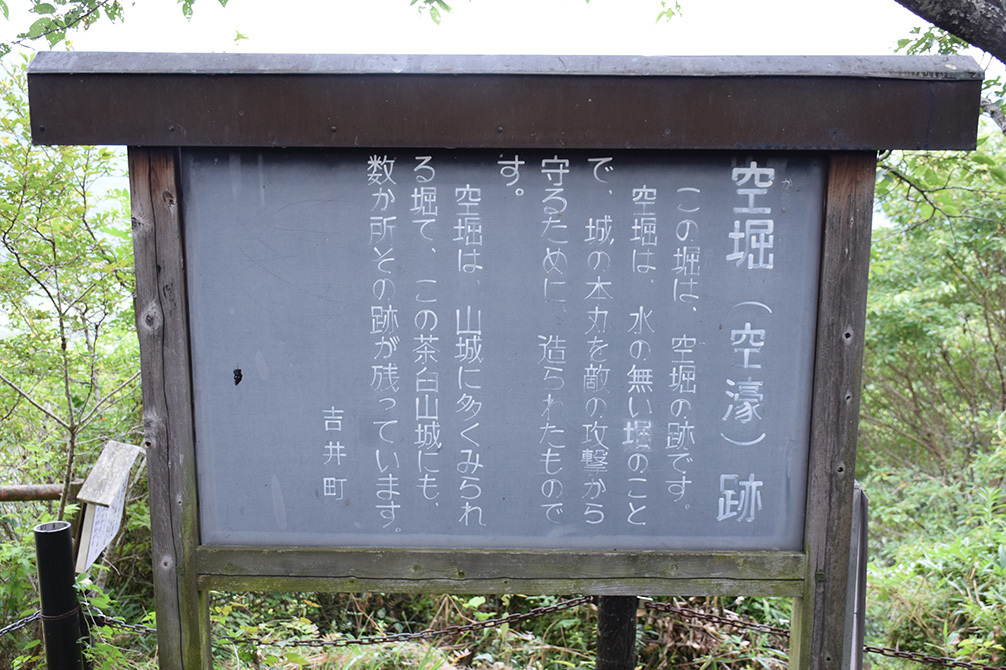 空堀（空濠）跡
この堀は、空堀の跡です。
空堀は、水の無い堀のこと
で、城の本丸を敵の攻撃から
守るために、造られたもので
す。
空堀は、山城に多くみられ
る堀で、この茶臼山城にも、
数か所その跡が残っています。
吉井町